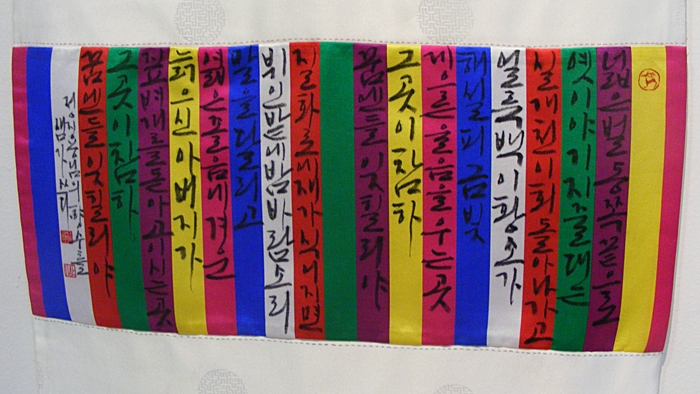 넓은 벌 동쪽 끝으로
옛이야기 지줄대는
실개천이 회돌아 나가고
얼룩백이 황소가
해설피 금빛
게으른 울음을 우는 곳
그곳이 참하
꿈엔들 잊힐리야
질화로에 재가 식어지면
뷔인 밭에 밤바람 소리
말을 달리고
엷은 조름에 겨운
늙으신 아버지가
짚벼개를 돋아 고이시는 곳
그곳이 참하
꿈엔들 잊힐리야
정지용님의 향수를
쓰다